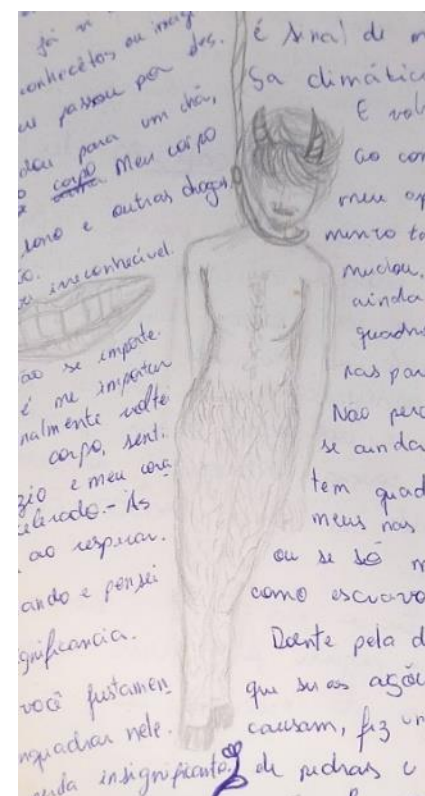 já vi
conhecêlos ou
eu passou por
para um chá,
corpo Meu corpo
sono e outras chagas
irreconhecível.
ão se importe.
é me importar
nalmente voltei
corpo, senti
zio e meu cora
celerado. - As
ao respirar.
ando e pensei
gnificancia.
você justamen
nquadrar nele.
insignificante.
é sinal de m
sa climátic
E vol
ao con
meu
mento to
mudou,
ainda
quadr
nas par
Não per
se ainda
tem quad
meus nas
ou se só m
como escravo
Doente pela d
que suas açõe
causam, fiz un
de pedras e